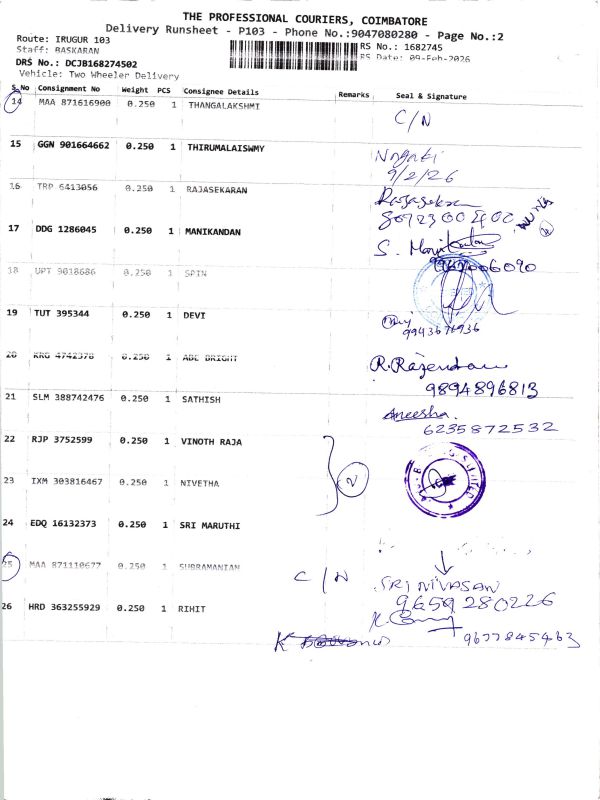 THE PROFESSIONAL COURIERS, COIMBATORE
Delivery Runsheet - P103 - Phone No.:9047080280 - Page No.:2
Route: IRUGUR 103
Staff: BASKARAN
RS No.: 1682745
RS Date: 09-Feb-2026
DRS No.: DCJB168274502
Vehicle: Two Wheeler Delivery
S.No Consignment No Weight PCS Consignee Details Remarks Seal & Signature
14 MAA 871616900 0.250 1 THANGALAKSHMI
C/N
15 GGN 901664662 0.250 1 THIRUMALAISWMY
9/2/26
16 TRP 6413056 0.250 1 RAJASEKARAN
Rajasekran
17 DDG 1286045 0.250 1 MANIKANDAN
S. Manikandan
18 UPT 9018686 0.250 1 SPIN
19 TUT 395344 0.250 1 DEVI
9943676936
20 KRG 4742378 0.250 1 ABE BRIGHT
R. Rajendran
9894896813
21 SLM 388742476 0.250 1 SATHISH
Aneesha.
6235872532
22 RJP 3752599 0.250 1 VINOTH RAJA
23 IXM 303816467 0.250 1 NIVETHA
2
24 EDQ 16132373 0.250 1 SRI MARUTHI
25 MAA 871110677 0.250 1 SUBRAMANIAN
C/N
SRINIVASAN
9659280226
26 HRD 363255929 0.250 1 RIHIT
9677845463